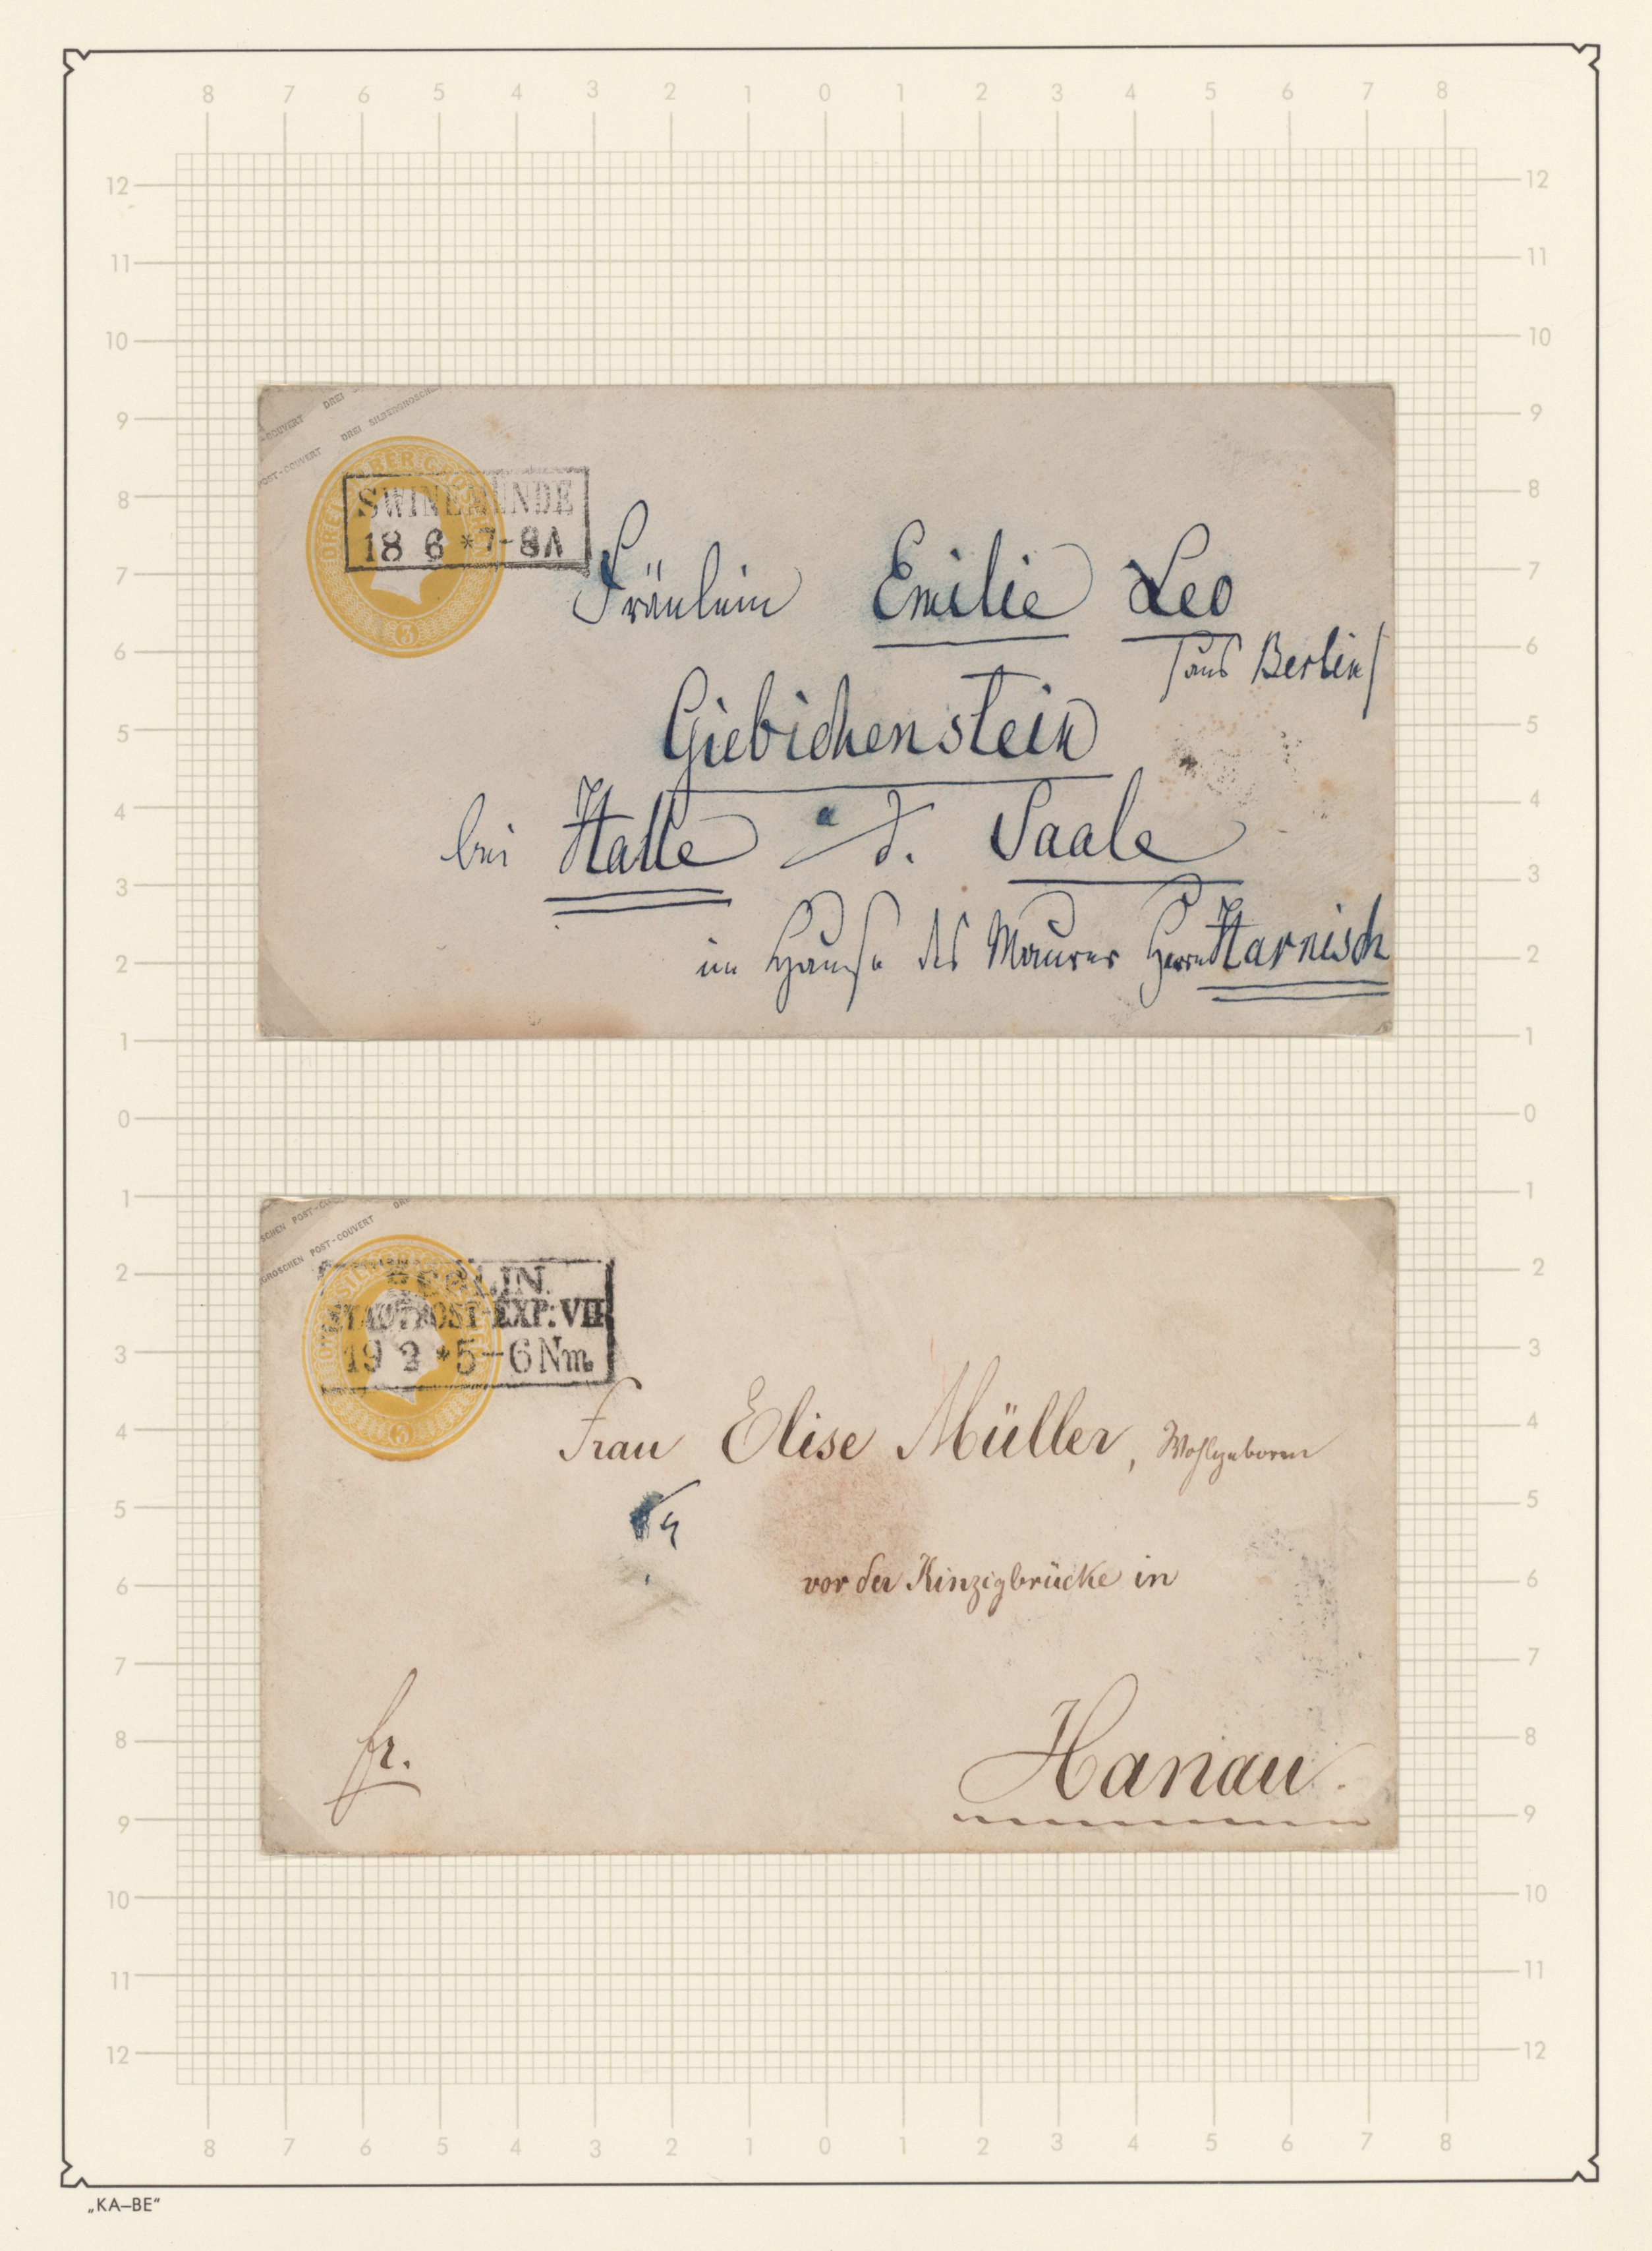 8 7 6 5 4 3 2 1 0 1 2 3 4 5 6 7 8
12 12
11 11
10 10
9 9
8 8
7 7
6 6
5 5
4 4
3 3
2 2
1 1
0 0
1 1
2 2
3 3
4 4
5 5
6 6
7 7
8 8
9 9
10 10
11 11
12 12
DREI
-COUVERT DREI SILBERGROSCHE
POST-COUVERT
DREI SILBERGROSCHEN
3
SWINEMÜNDE
18 6 *7-8A
Fräulein Emilie Leo
/aus Berlin/
Giebichenstein
bei Halle a/d. Saale
im Hause des Maurer Herrn Harnisch
SCHEN POST-COU
GROSCHEN POST-COUVERT DR
3
BERLIN.
STADTPOST-EXP: VII
19 2 *5-6 Nm.
Frau Elise Müller, Wohlgeboren
vor der Kinzigbrücke in
fr.
Hanau.
8 7 6 5 4 3 2 1 0 1 2 3 4 5 6 7 8
„KA–BE“